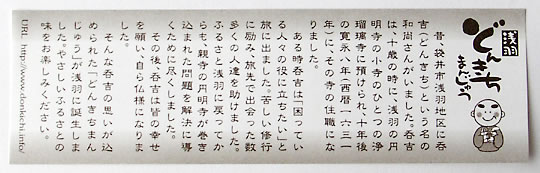 浅羽
どんきち
まんじゅう
昔、袋井市浅羽地区に呑
吉(どんきち)という名の
和尚さんがいました。呑吉
は、十歳の時に、浅羽の円
明寺の小寺のひとつの浄
瑠璃寺に預けられ、十年後
の寛永八年(西暦一六三一
年)に、その寺の住職にな
りました。
ある時呑吉は「困ってい
る人々の役に立ちたい」と
旅に出ました。苦しい修行
に励み、旅先で出会った数
多くの人達を助けました。
ふるさと浅羽に戻ってか
らも、親寺の円明寺が巻き
込まれた問題を解決に導
くために尽くしました。
その後、呑吉は皆の幸せ
を願い、自ら仏様になりま
した。
そんな呑吉の思いが込
められた「どんきちまん
じゅう」が浅羽に誕生しま
した。やさしいふるさとの
味をお楽しみください。
URL http://www.donkichi.info/